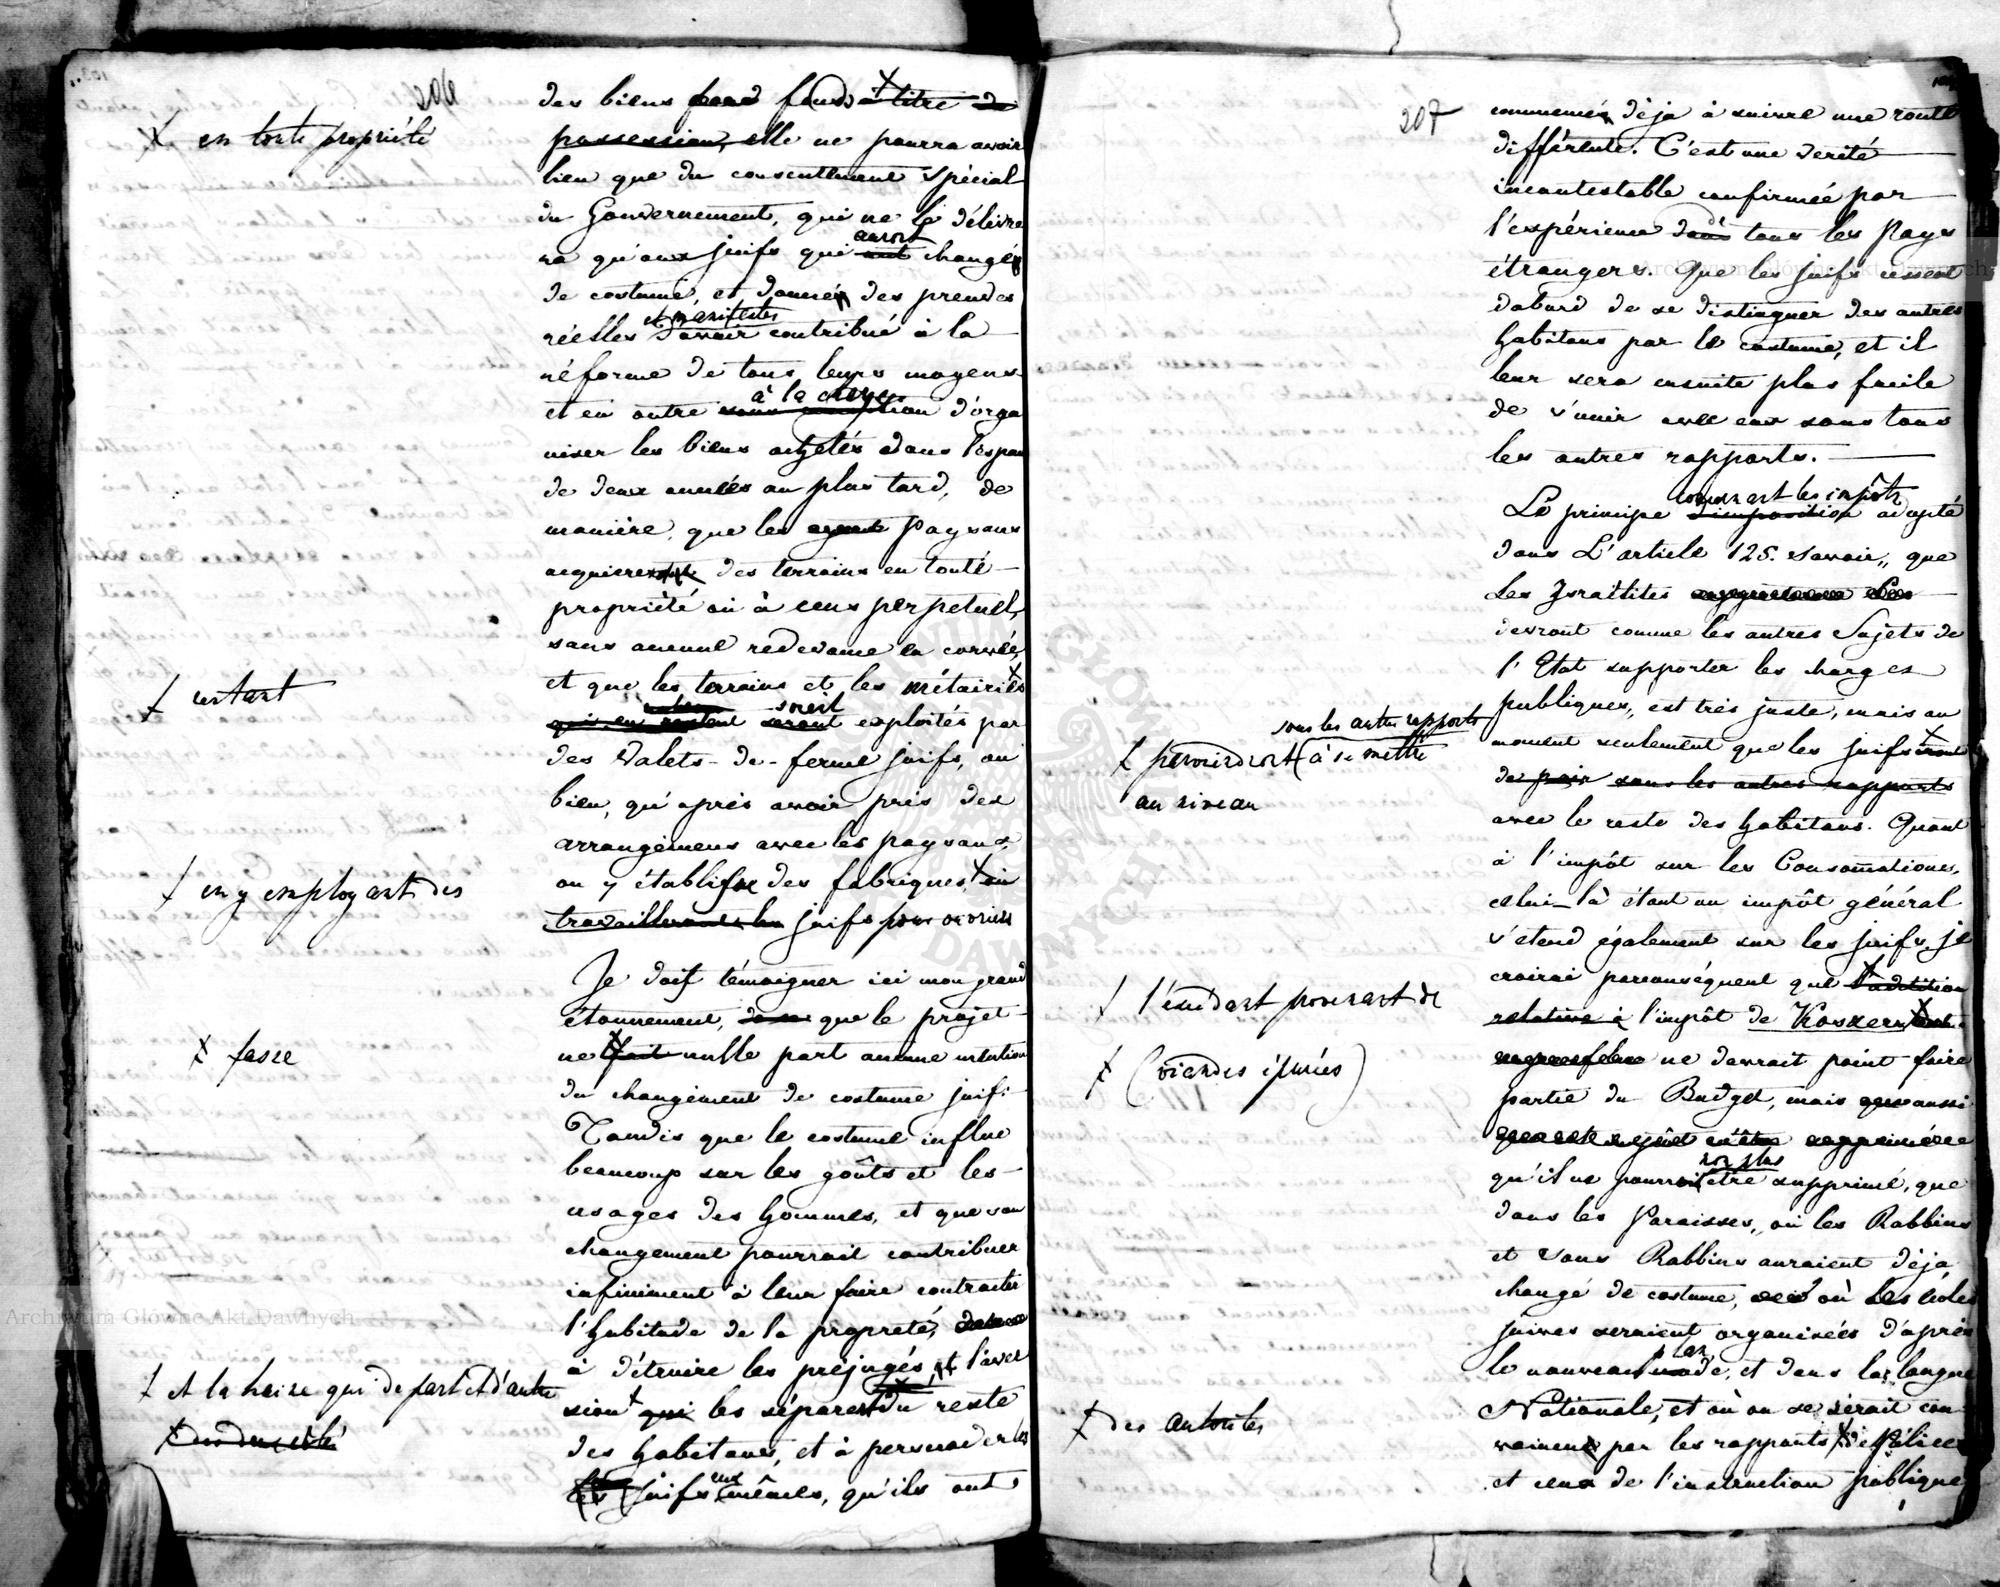 206
des biens fonds à titre de
✗ en toute propriété
possession, elle ne pourra avoir
lieu que du consentement spécial
du Gouvernement, qui ne le délivre
auront
ra qu'aux juifs qui ont changé
de costume, et donné des preuves
et manifestes
réelles d'avoir contribué à la
réforme de tous leurs moyens
à la charge
et en outre sous condition d'orga
niser les biens achetés dans l'espace
de deux années au plus tard, de
manière, que les paysans
acquierent des terrains en toute
propriété ou à cens perpetuel,
sans aucune redevance en corvée,
et que les terrains et les métairies
✗ restant
soient
qui en restent seront exploités par
des Valets-de-ferme juifs, ou
bien, qu'après avoir pris des
arrangemens avec les paysans,
on y établisse des fabriques, où
✗ en y employant des
travailleront les juifs pour ouvriers
Je dois témoigner ici mon grand
étonnement, que le projet
ne fait nulle part aucune mention
✗ fasse
du changement de costume juif.
Tandis que le costume influe
beaucoup sur les goûts et les
usages des hommes, et que son
changement pourrait contribuer
infiniment à leur faire contracter
l'habitude de la propreté,
à détruire les préjugés, et l'aver
✗ et la haine qui de part et d'autre
sion qui les séparent du reste
des habitans, et à persuader les
eux
les juifs mêmes, qu'ils ont
207
commencé déja à suivre une route
différente. C'est une verité
incontestable confirmée par
l'expérience dans tous les Pays
étrangers. Que les juifs cessent
dabord de se distinguer des autres
habitans par le costume, et il
leur sera ensuite plus facile
de s'unir avec eux sous tous
les autres rapports.
concernant les impôts
Le principe d'imposition adopté
dans L'article 125. savoir, que
Les Israélites
devront comme les autres Sujets de
l'Etat supporter les charges
publiques, est très juste, mais au
sous les autres rapports
moment seulement que les juifs iront
✗ parviendront à se mettre
au niveau
de pair sous les autres rapports
avec le reste des habitans. Quant
à l'impôt sur les Consomations,
celui-là étant un impôt général
s'etend également sur les juifs, je
croirai parconséquent que l'addition
✗ l'excédent provenant de
relative à l'impôt de Koszern
✗ (viandes épurées)
ne devrait point faire
partie du Budget, mais aussi
non plus
qu'il ne pourrait être supprimé, que
dans les Paroisses, où les Rabbins
et sous Rabbins auraient déja
changé de costume, où Les écoles
juives seraient organisées d'après
plan
le nouveau mode, et dans la langue
Nationale, et où on se serait con
✗ des autorités
vaincu par les rapports de Police
et ceux de l'instruction publique
Archiwum Główne Akt Dawnych